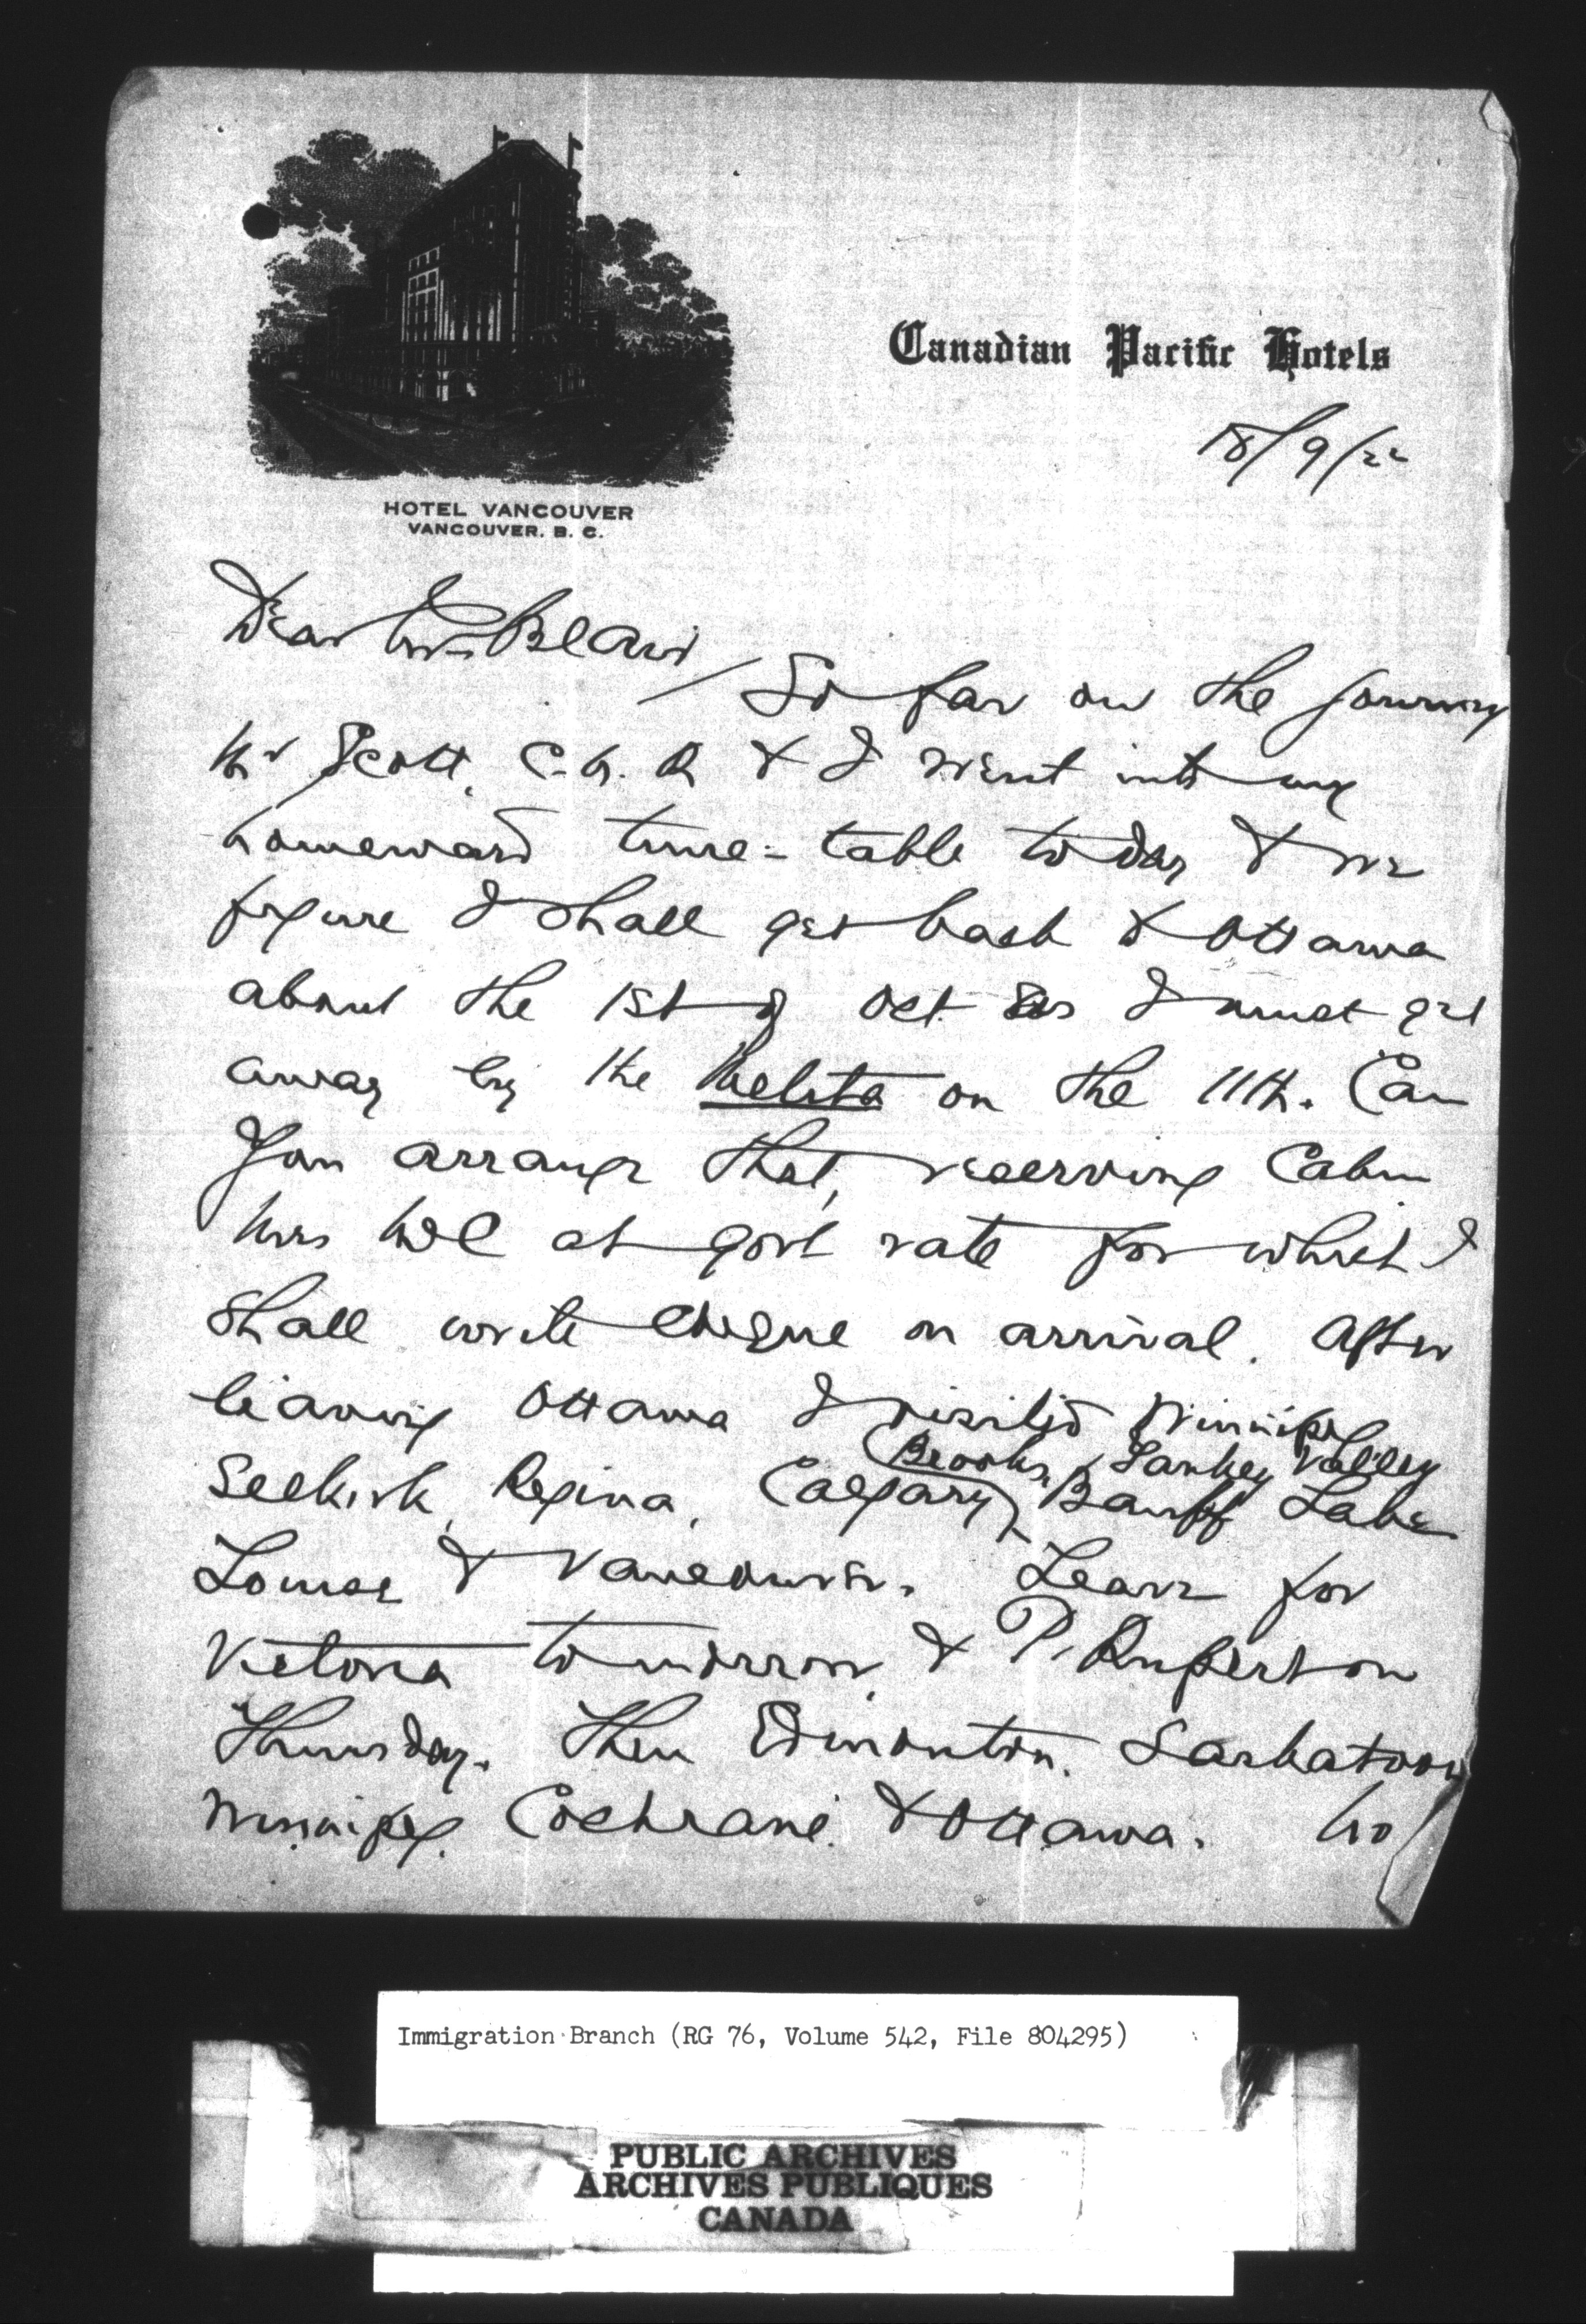 Canadian Pacific Hotels
18/9/22
HOTEL VANCOUVER
VANCOUVER. B. C.
Dear Mr Blair
So far on the journey
Mr Scott, C.N.R & I went into my
homeward time-table to day & we
figure I shall get back to Ottawa
about the 1st of Oct as I must get
away by the Melita on the 11th. Can
you arrange that, reserving Cabin
at govt rate for which I
shall write cheque on arrival. After
leaving Ottawa I visited Winnipeg
Brooks, Valley
Selkirk, Regina, Calgary, Banff Lake
Louise & Vancouver. Leave for
Victoria tomorrow, & P. Rupert on
Thursday. Then Edmonton. Saskatoon
Winnipeg. Cochrane & Ottawa. No
Immigration Branch (RG 76, Volume 542, File 804295)
PUBLIC ARCHIVES
ARCHIVES PUBLIQUES
CANADA